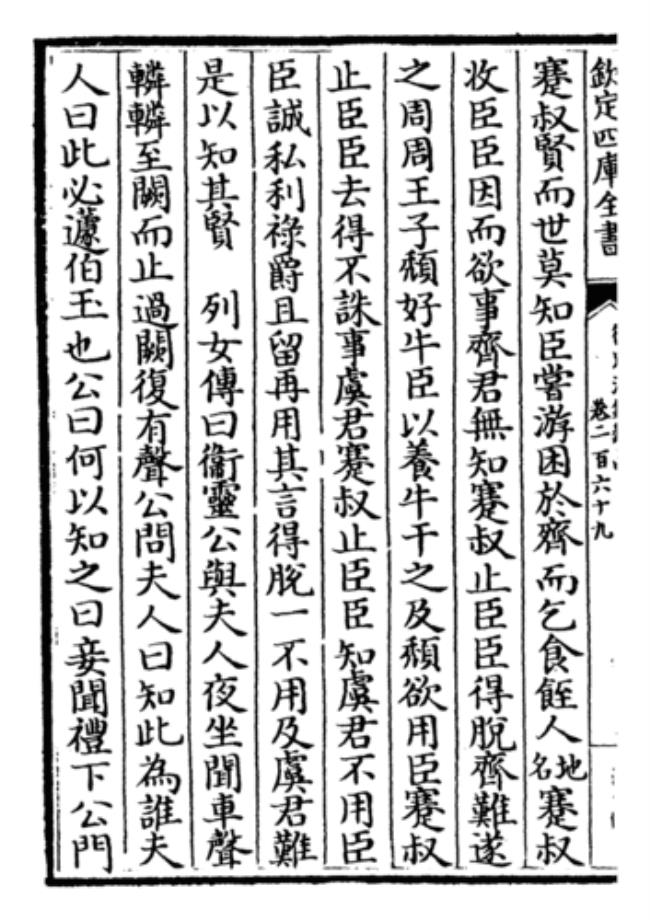 欽定四庫全書
卷二百六十九
蹇叔賢而世莫知臣嘗游困於齊而乞食餁人地名蹇叔
收臣臣因而欲事齊君無知蹇叔止臣臣得脫齊難遂
之周周王子頽好牛臣以養牛干之及頽欲用臣蹇叔
止臣臣去得不誅事虞君蹇叔止臣臣知虞君不用臣
臣誠私利祿爵且留再用其言得脫一不用及虞君難
是以知其賢　列女傳曰衞靈公與夫人夜坐聞車聲
轔轔至闕而止過闕復有聲公問夫人曰知此為誰夫
人曰此必蘧伯玉也公曰何以知之曰妾聞禮下公門